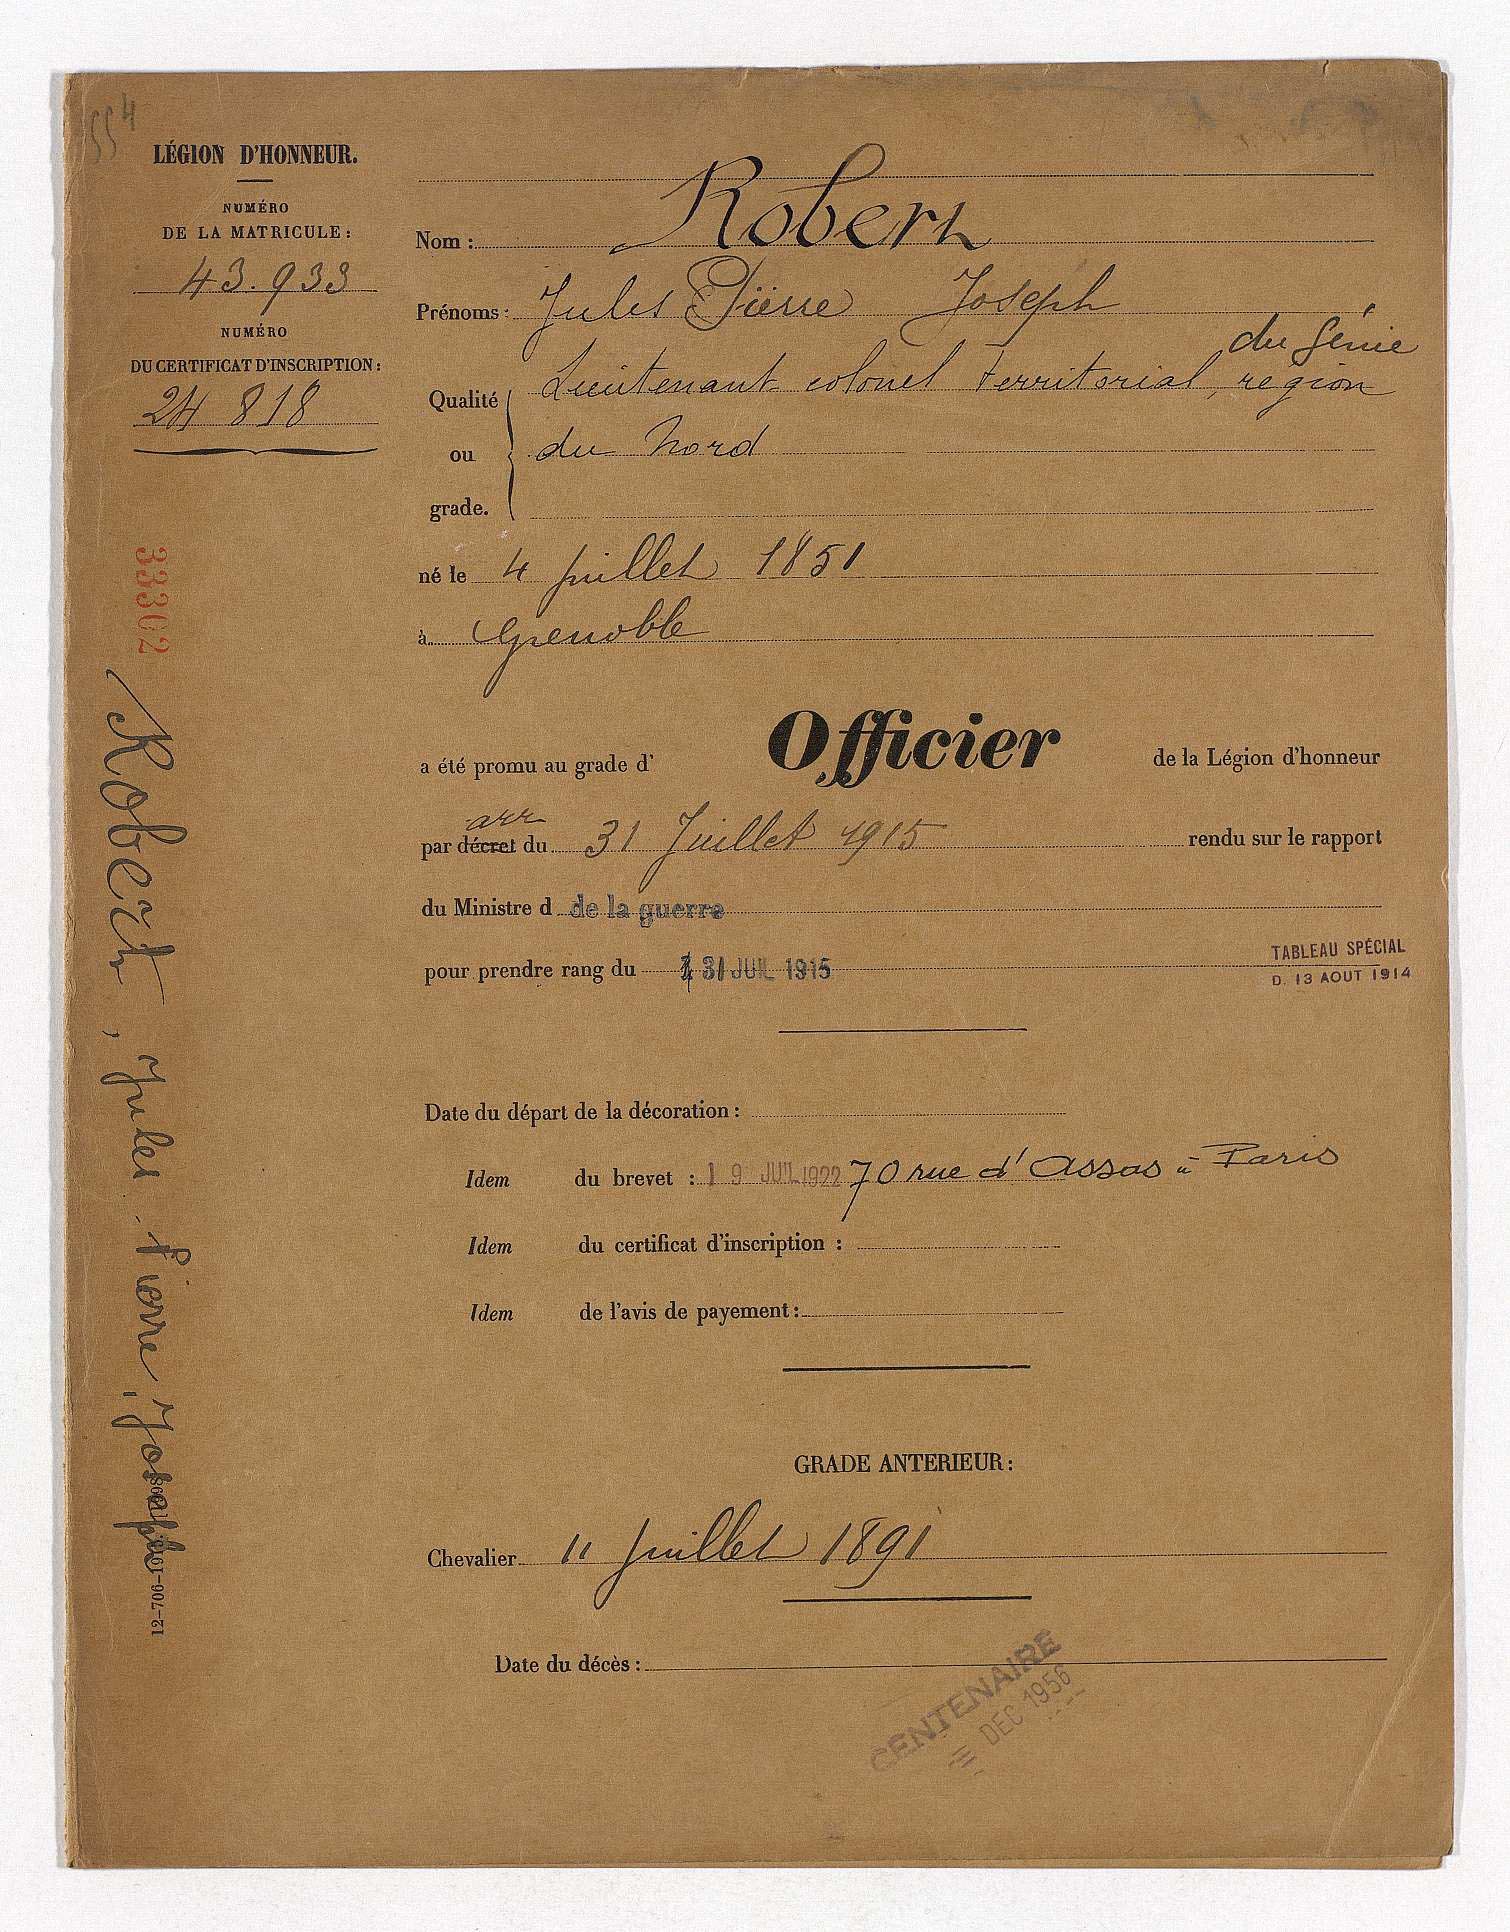 554
LÉGION D'HONNEUR.
NUMÉRO
DE LA MATRICULE:
43.933
NUMÉRO
DU CERTIFICAT D'INSCRIPTION:
24 818
33302
Robert, Jules Pierre, Joseph
Nom : Robert
Prénoms : Jules Pierre Joseph
du génie
Qualité Lieutenant colonel territorial, région
ou du Nord
grade.
né le 4 juillet 1851
à Grenoble
a été promu au grade d' Officier de la Légion d'honneur
arr
par décret du 31 Juillet 1915 rendu sur le rapport
du Ministre d de la guerre
pour prendre rang du 31 JUIL 1915
TABLEAU SPÉCIAL
D. 13 AOUT 1914
Date du départ de la décoration :
Idem du brevet : 19 JUIL 1922 70 rue d'Assas à Paris
Idem du certificat d'inscription :
Idem de l'avis de payement :
GRADE ANTERIEUR :
Chevalier 11 juillet 1891
Date du décès :
CENTENAIRE
DEC 1956